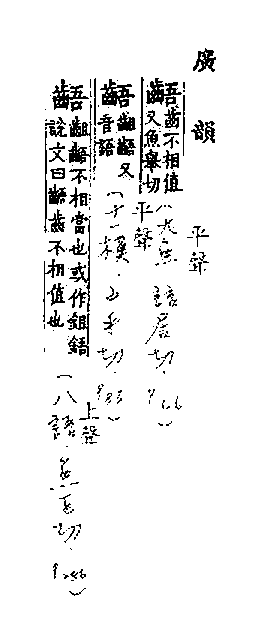 廣韻
齬齒不相值
又魚舉切
平聲
(九魚·語居切·P66)
齬齟齬又
音語
平聲
(十一模·五乎切·P83)
齬齟齬不相當也或作鉏鋙
說文曰齬齒不相值也
上聲
(八語·魚巨切·P256)